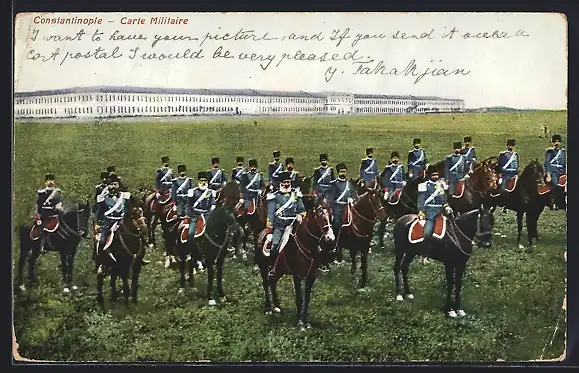 Constantinople – Carte Militaire
I want to have your picture, and If you send it over a
cart postal I would be very pleased.
Y. Takakjian